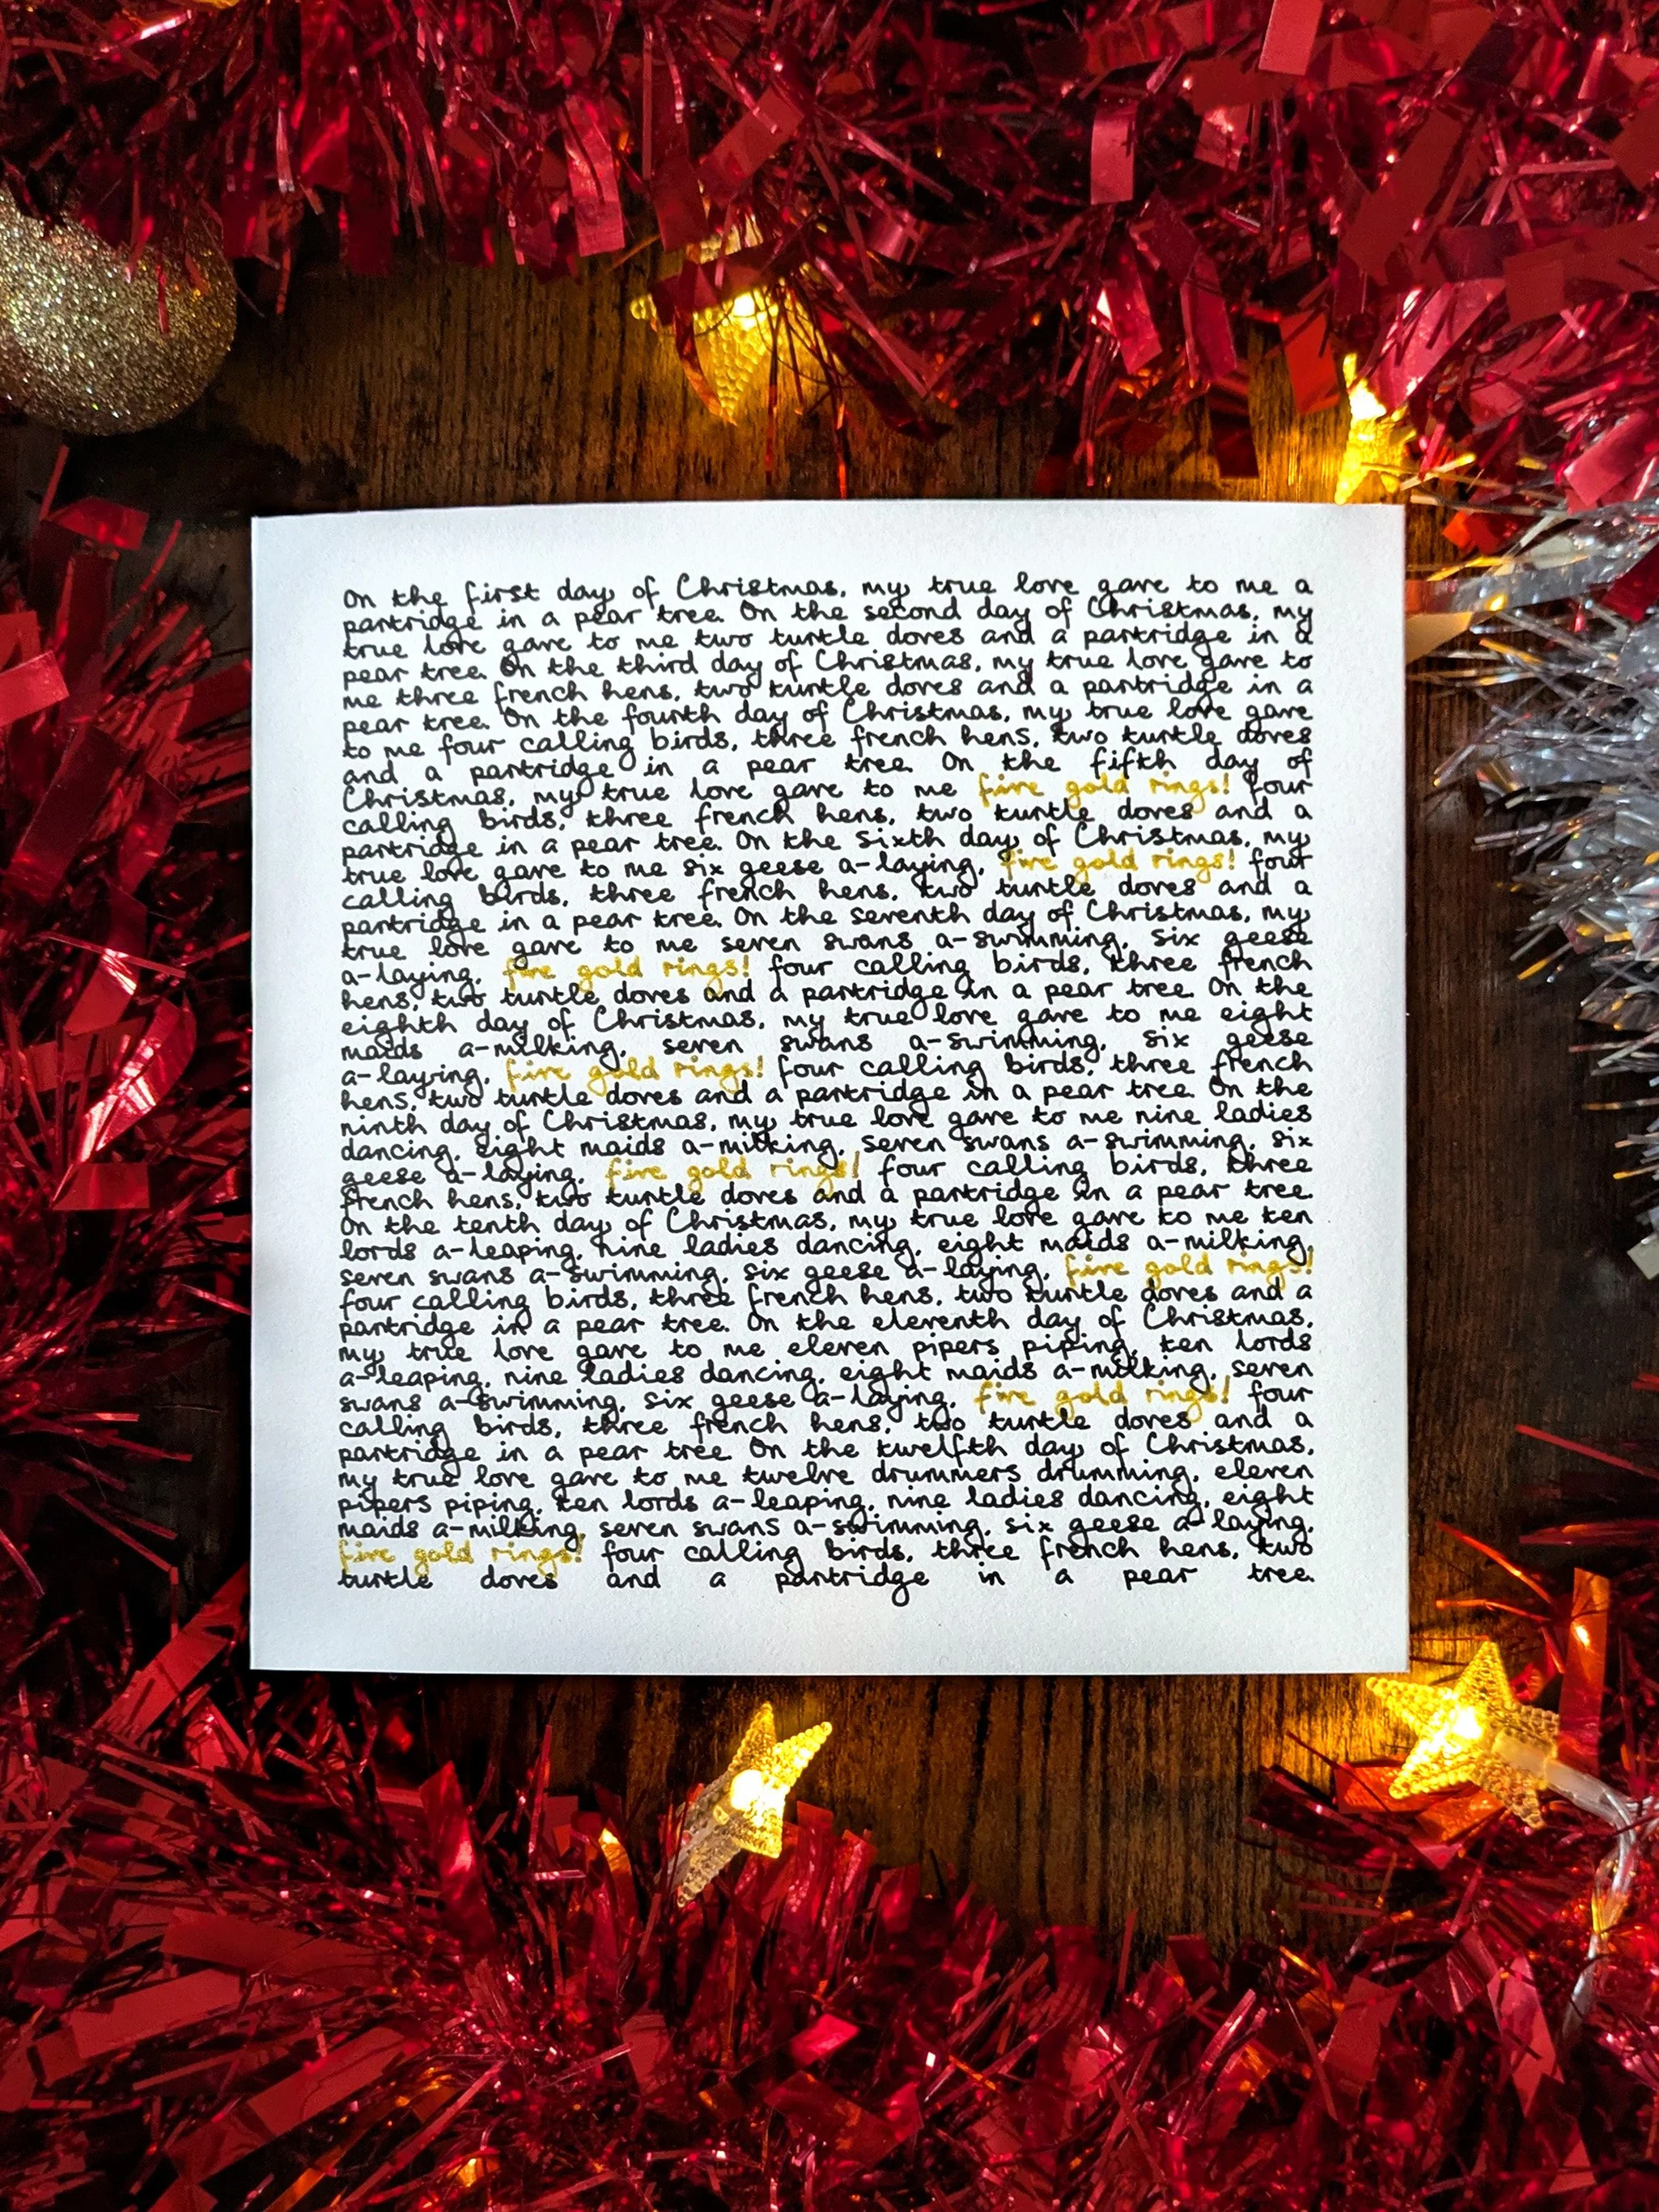 On the first day of Christmas, my true love gave to me a
partridge in a pear tree. On the second day of Christmas, my
true love gave to me two turtle doves and a partridge in a
pear tree. On the third day of Christmas, my true love gave to
me three french hens, two turtle doves and a partridge in a
pear tree. On the fourth day of Christmas, my true love gave
to me four calling birds, three french hens, two turtle doves
and a partridge in a pear tree. On the fifth day of
Christmas, my true love gave to me five gold rings! four
calling birds, three french hens, two turtle doves and a
partridge in a pear tree. On the sixth day of Christmas, my
true love gave to me six geese a-laying, five gold rings! four
calling birds, three french hens, two turtle doves and a
partridge in a pear tree. On the seventh day of Christmas, my
true love gave to me seven swans a-swimming, six geese
a-laying, five gold rings! four calling birds, three french
hens, two turtle doves and a partridge in a pear tree. On the
eighth day of Christmas, my true love gave to me eight
maids a-milking, seven swans a-swimming, six geese
a-laying, five gold rings! four calling birds, three french
hens, two turtle doves and a partridge in a pear tree. On the
ninth day of Christmas, my true love gave to me nine ladies
dancing, eight maids a-milking, seven swans a-swimming, six
geese a-laying, five gold rings! four calling birds, three
french hens, two turtle doves and a partridge in a pear tree.
On the tenth day of Christmas, my true love gave to me ten
lords a-leaping, nine ladies dancing, eight maids a-milking,
seven swans a-swimming, six geese a-laying, five gold rings!
four calling birds, three french hens, two turtle doves and a
partridge in a pear tree. On the eleventh day of Christmas,
my true love gave to me eleven pipers piping, ten lords
a-leaping, nine ladies dancing, eight maids a-milking, seven
swans a-swimming, six geese a-laying, five gold rings! four
calling birds, three french hens, two turtle doves and a
partridge in a pear tree On the twelfth day of Christmas,
my true love gave to me twelve drummers drumming, eleven
pipers piping, ten lords a-leaping, nine ladies dancing, eight
maids a-milking, seven swans a-swimming, six geese a-laying,
five gold rings! four calling birds, three french hens, two
turtle doves and a partridge in a pear tree.